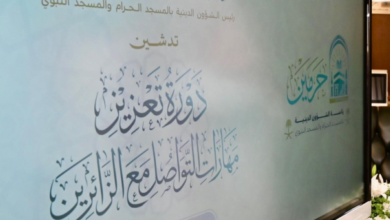 رئيس الشؤون الدينية بالمسجد الحرام والمسجد النبوي
تدشين
دورة تعزيز
مهارات التواصل مع الزائرين
حرمين
رئاسة الشؤون الدينية